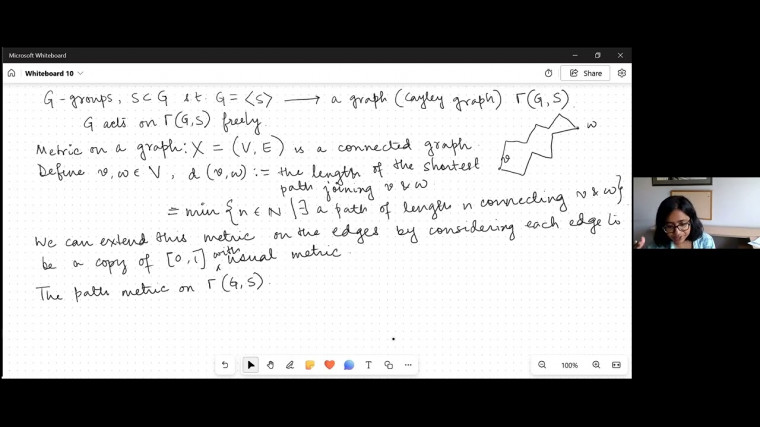 Microsoft Whiteboard
Whiteboard 10
Share
G-groups, S⊂G s.t. G = ⟨S⟩ ⟶ a graph (Cayley graph) Γ(G,S)
G acts on Γ(G,S) freely.
Metric on a graph: X = (V, E) is a connected graph
Define v, w ∈ V, d(v,w) := the length of the shortest
path joining v & w
= min {n ∈ N | ∃ a path of length n connecting v & w}
v
w
We can extend this metric on the edges by considering each edge to
be a copy of [0,1] with usual metric.
The path metric on Γ(G,S).
T
100%